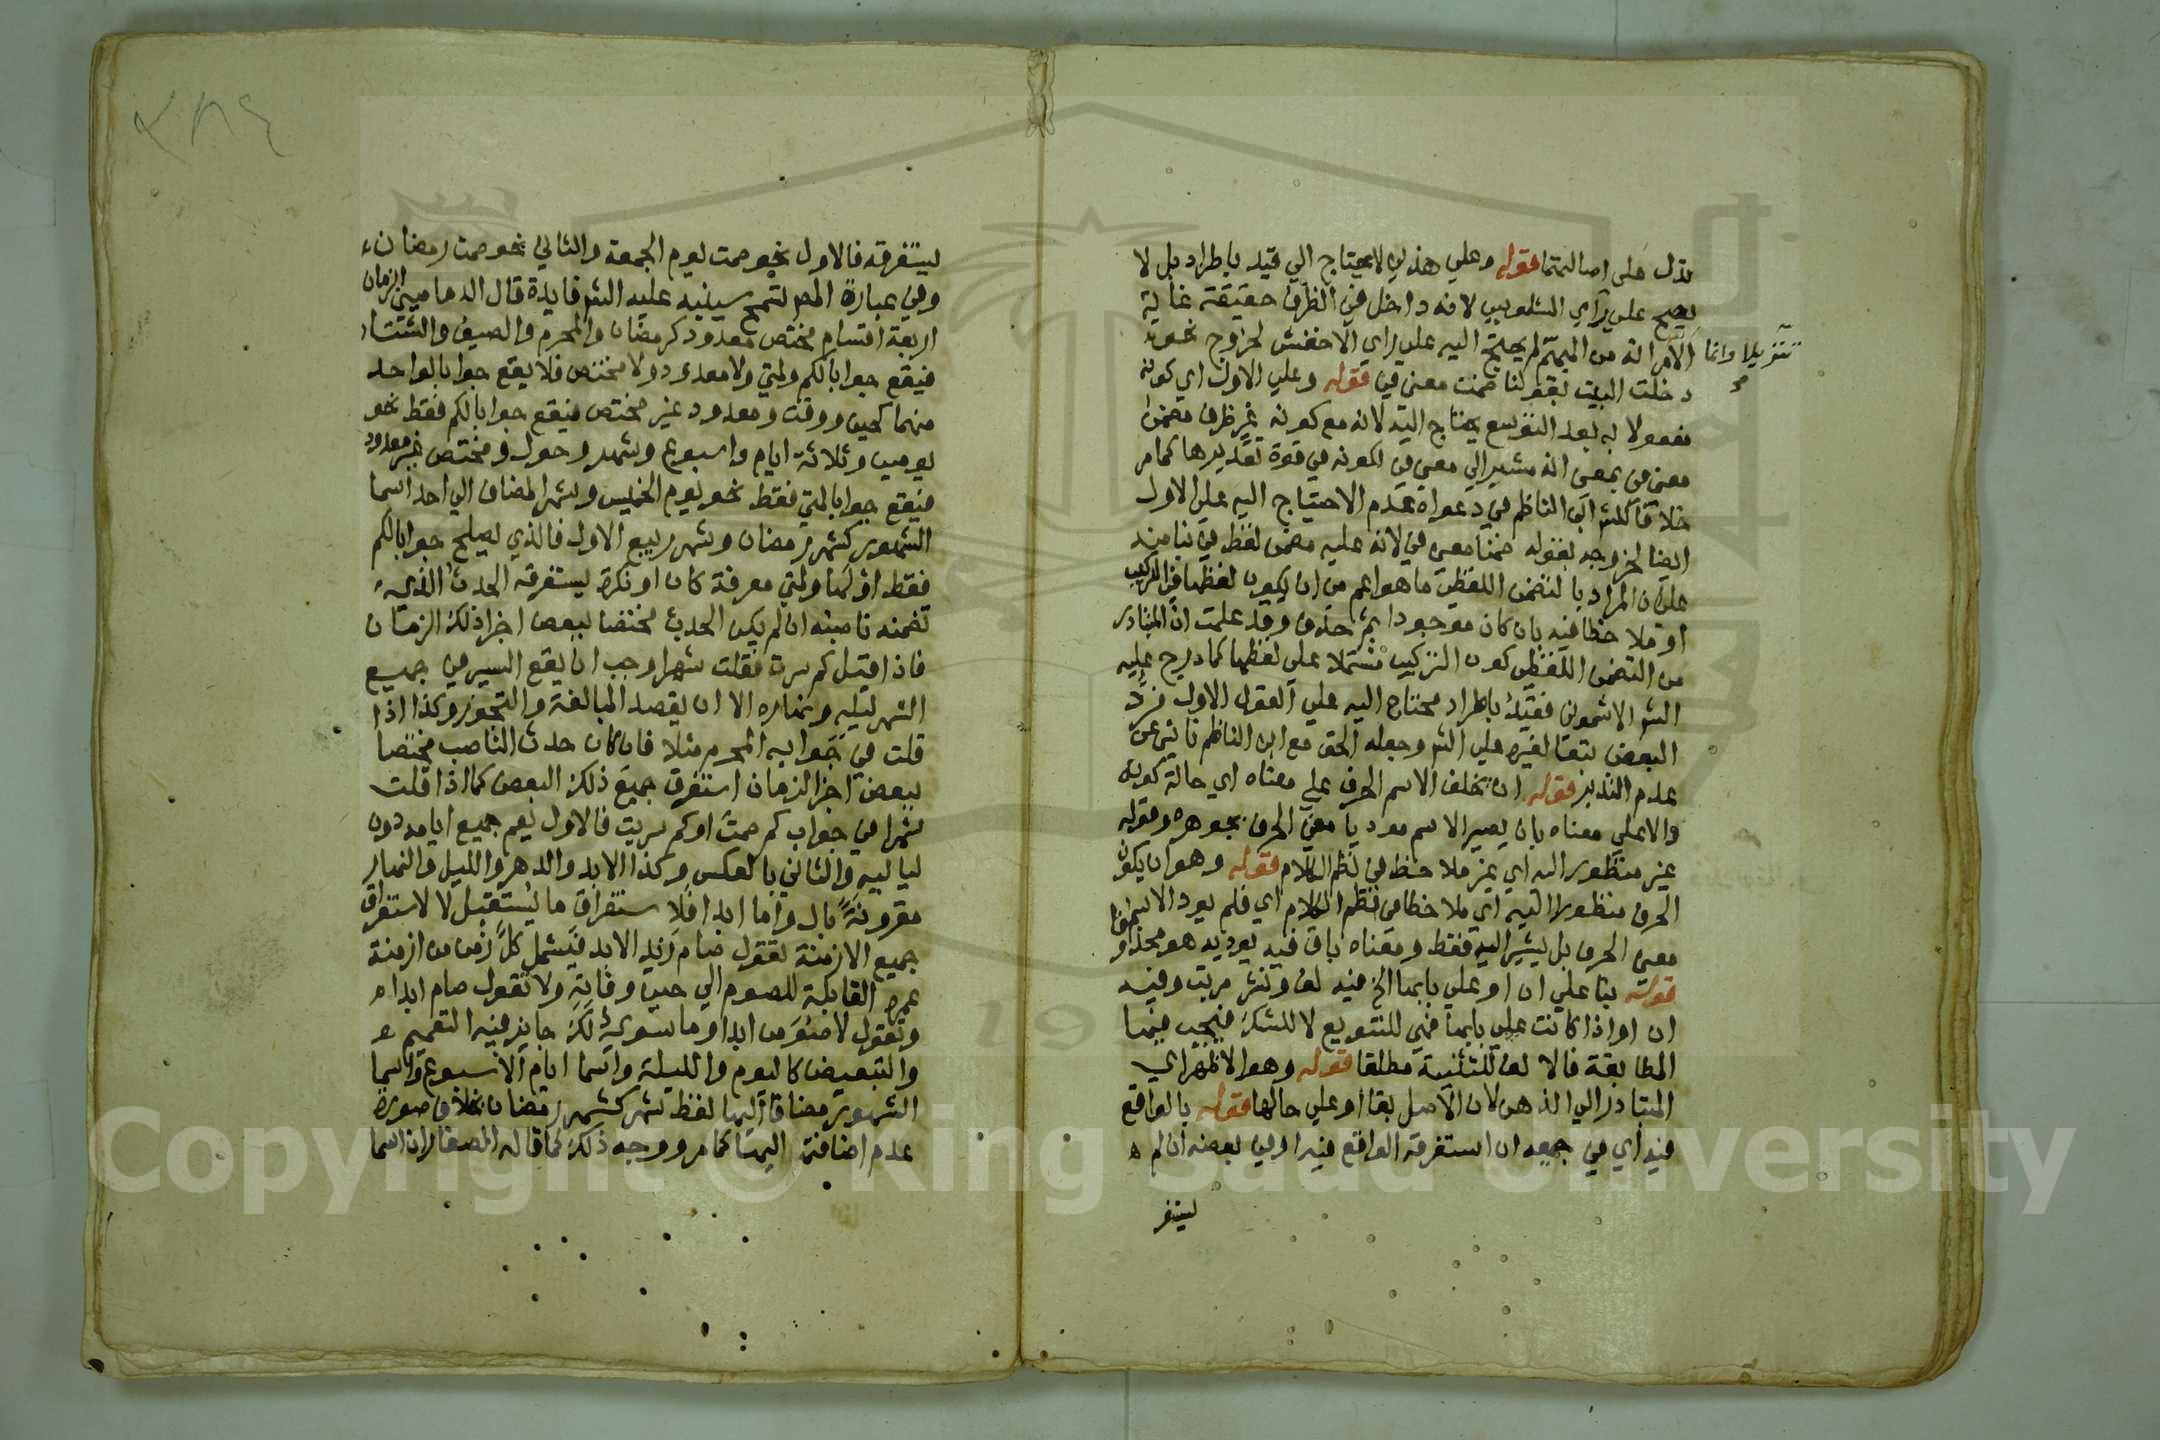 تدل على اصالتها قوله وعلى هذين لا يحتاج الي قيد باطراد بل لا
يصح على راي الشلوبين لانه داخل في الظرف حقيقة غاية
الامر انه من المبهم لم يحتج اليه على راي الاخفش لخروج نحو
تنزيلا وانما
دخلت البيت بقولنا ضمنت معنى في قوله وعلى الاول اي كونه
مفعولا به بعد التوسع يحتاج اليه لانه مع كونه غير ظرف مضمن
معنى في بمعنى انه مشير الي معنى في لكونه في قوة تقديرها كما مر
خلافا للش ابن الناظم في دعواه عدم الاحتياج اليه على الاول
ايضا لخروجه بقوله ضمنا معنى في لانه عليه مضمن لفظ في بنا منه
على ان المراد بالتضمن اللفظي ما هو اعم من ان يكون لفظها في التركيب
او ملاحظا فيه بان كان موجودا ثم حذف وقد علمت ان المتبادر
من التضمن اللفظي كون التركيب مشتملا على لفظها كما درج عليه
الش الاشموني فقيد باطراد محتاج اليه على القول الاول فرد
البعض تبعا لغيره على الش وجعله الحق مع ابن الناظم ناشئ عن
عدم التدبر قوله ان يخلف الاسم الحرف على معناه اي حالة كونه
والا على معناه بان يصير الاسم موديا معنى الحرف بجوهره وقوله
غير منظور اليه اي غير ملاحظ في نظم الكلام قوله وهو ان يكون
الحرف منظورا اليه اي ملاحظا في نظم الكلام اي فلم يود الاسم
معنى الحرف بل يشير اليه فقط ومعناه باق فيه يوديه هو محذوفا
قوله بنا على ان او على بابها الخ فيه لف ونشر مرتب وفيه
ان او اذا كانت على بابها فهي للتنويع لا للشك فيجب فيها
المطابقة فالالف للتثنية مطلقا قوله وهو الاظهر اي
المتبادر الي الذهن لان الاصل بقا او على حالها قوله بالواقع
فيه اي في جميعه ان استغرقه الواقع فيه او في بعضه ان لم
يستغر
٢٨٤
يستغرقه فالاول نحو صمت يوم الجمعة والثاني نحو صمت رمضان
وفي عبارة المص تسمح سينبه عليه الش فايدة قال الدماميني الزمان
اربعة اقسام مختص معدود كرمضان والمحرم والصيف والشتا
فيقع جوابا لكم ولمتي ولا معدود ولا مختص فلا يقع جوابا لواحد
منهما كحين ووقت ومعدود غير مختص فيقع جوابا لكم فقط نحو
يومين وثلاثة ايام واسبوع وشهر وحول ومختص غير معدود
فيقع جوابا لمتي فقط نحو يوم الخميس وشهر المضاف الي احد اسما
الشهور كشهر رمضان وشهر ربيع الاول فالذي يصلح جوابا لكم
فقط او لها ولمتي معرفة كان او نكرة يستغرقه الحدث الذي
تضمنه ناصبه ان لم يكن الحدث مختصا ببعض اجزا ذلك الزمان
فاذا قيل كم سرت فقلت شهرا وجب ان يقع السير في جميع
الشهر ليله ونهاره الا ان يقصد المبالغة والتجوز وكذا اذا
قلت في جوابه المحرم مثلا فان كان حدث الناصب مختصا
ببعض اجزا الزمان استغرق جميع ذلك البعض كما اذا قلت
شهرا في جواب كم صمت او كم سريت فالاول يعم جميع ايامه دون
لياليه والثاني بالعكس وكذا الابد والدهر والليل والنهار
مقرونة بال واما ابدا فلاستغراق ما يستقبل لا لاستغراق
جميع الازمنة تقول صام زيد الابد فيشمل كل زمن من ازمنة
عمره القابلة للصوم الي حين وفاته ولا تقول صام ابدا
وتقول لا صومن ابدا وما سوى ذلك جايز فيه التعميم
والتبعيض كاليوم والليلة واسما ايام الاسبوع واسما
الشهور مضافا اليها لفظ شهر كشهر رمضان بخلاف صورة
عدم اضافته اليها كما مر ووجه ذلك كما قاله الصفار ان اسما